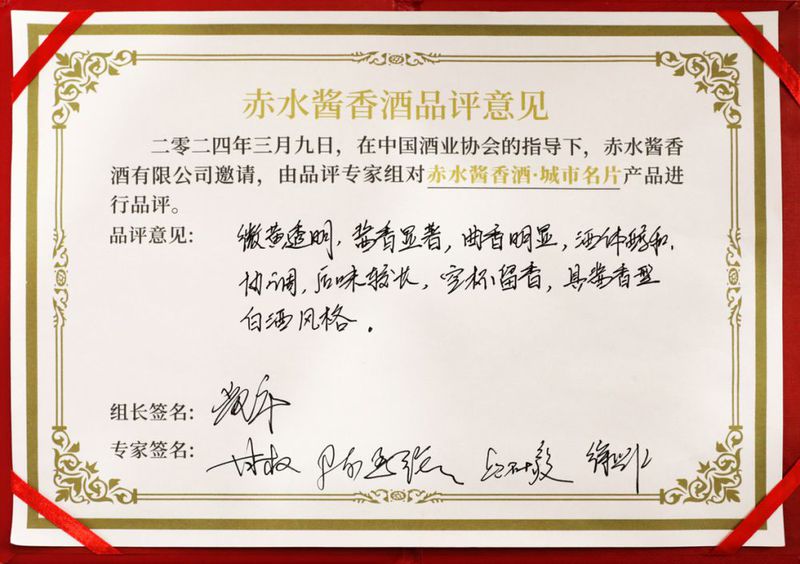 赤水酱香酒品评意见
二零二四年三月九日，在中国酒业协会的指导下，赤水酱香
酒有限公司邀请，由品评专家组对赤水酱香酒·城市名片产品进
行品评。
品评意见：微黄透明，酱香显著，曲香明显，酒体醇和、
协调，后味较长，空杯留香，具酱香型
白酒风格。
组长签名：
专家签名：